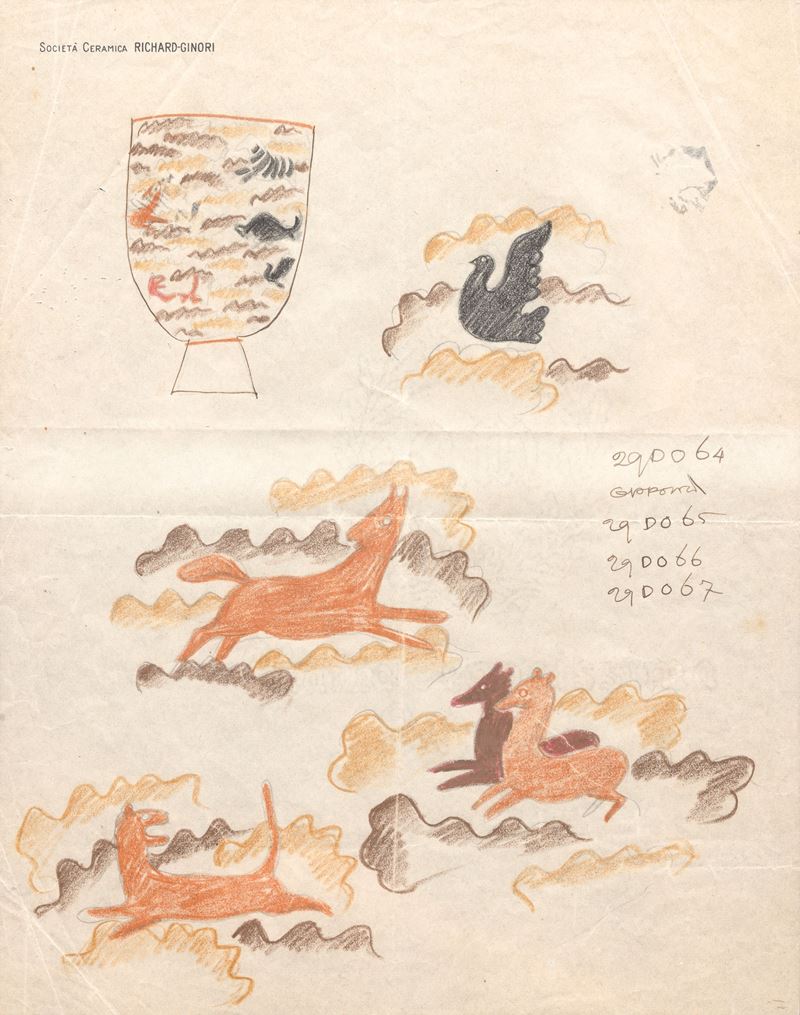 SOCIETÀ CERAMICA RICHARD-GINORI
29 DO 64
29 DO 65
29 DO 66
29 DO 67